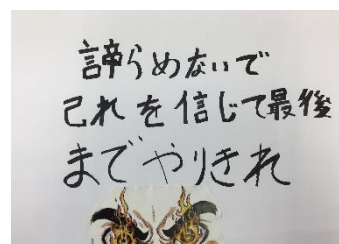 諦らめないで
己れを信じて最後
までやりきれ